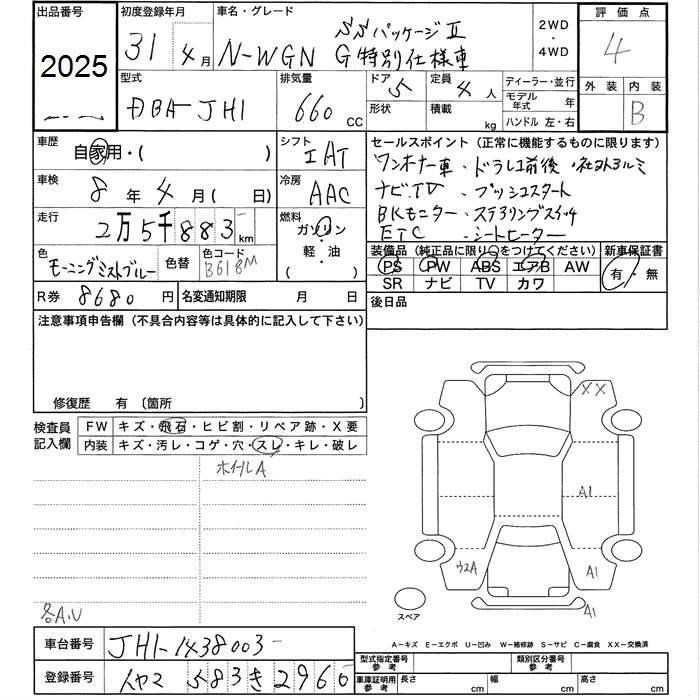 出品番号 初度登録年月 車名・グレード 評価点
2025 31年4月 N-WGN SSパッケージⅡ G特別仕様車 2WD・4WD 4
型式 排気量 ドア 定員 ディーラー・並行 外装 内装
DBA-JH1 660cc 5 4人 モデル年式 年 B
形状 積載 kg ハンドル 左・右
車歴 自家用・( ) シフト IAT セールスポイント (正常に機能するものに限ります)
ワンオーナー車・ドラレコ前後・社外アルミ
車検 8年4月(日) 冷房 AAC ナビ、TV・プッシュスタート
走行 2万5千883km 燃料 ガソリン・軽・油( ) BKモニター・ステアリングスイッチ
ETC・シートヒーター
色 モーニングミストブルー 色替 色コード B618M 装備品 (純正品に限り○をつけてください) 新車保証書
PS PW ABS エアB AW 有・無
SR ナビ TV カワ
R券 8680円 名変通知期限 月 日 後日品
注意事項申告欄 (不具合内容等は具体的に記入して下さい)
修復歴 有 〔箇所
検査員記入欄 FW キズ・飛石・ヒビ割・リペア跡・X要
内装 キズ・汚レ・コゲ・穴・スレ・キレ・破レ
ホイルA
XX
A1
ウ2A A1
A1
スペア
各A.U
A-キズ E-エクボ U-凹み W-補修跡 S-サビ C-腐食 XX-交換済
車台番号 JH1-1438003
型式指定番号 参考 類別区分番号 参考
登録番号 583き2960
車庫証明用 参考 長さ cm 幅 cm 高さ cm